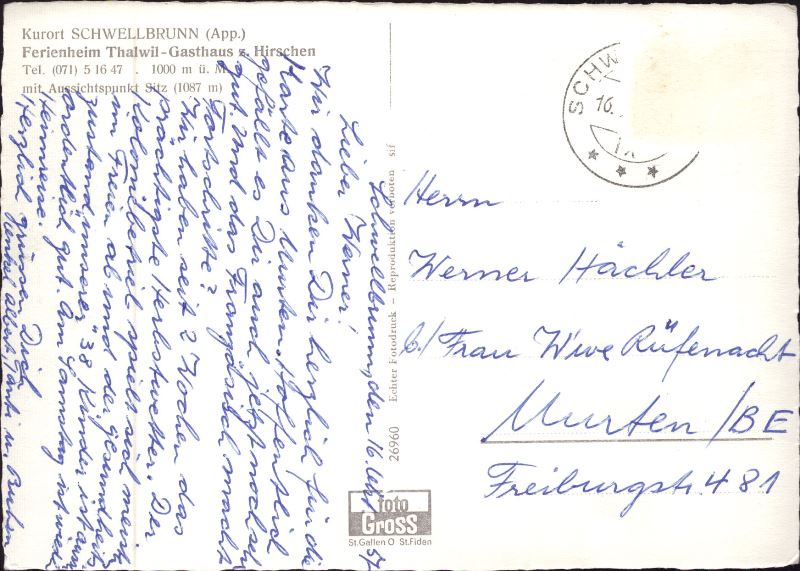 Kurort SCHWELLBRUNN (App.)
Ferienheim Thalwil-Gasthaus z. Hirschen
Tel. (071) 5 16 47 . 1000 m ü. M.
mit Aussichtspunkt Sitz (1087 m)
Schwellbrunn, den 16. Okt. 57
Lieber Werner!
Wir danken Dir herzlich für die
Karte aus Murten. Hoffentlich
gefällt es Dir auch jetzt noch sehr
gut und das Französisch macht
Fortschritte?
Wir haben seit 2 Wochen das
prächtigste Herbstwetter. Der
Koloniebetrieb spielt sich meist
im Freien ab und der Gesundheits-
zustand unserer 38 Kinder ist
ordentlich gut. Am Samstag ist
Heimreise.
Herzlich grüssen Dich
Albert, u.
26960 Echter Fotodruck — Reproduktion verboten sif
foto
GROSS
St. Gallen O St. Fiden
SCHW
16.
Herrn
Werner Hächler
b/ Frau Wwe Rüfenacht
Murten/BE
Freiburgstr. 481